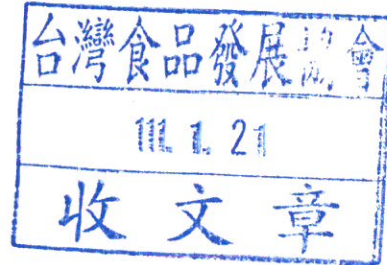 台灣食品發展協會
111. 1. 21
收文章